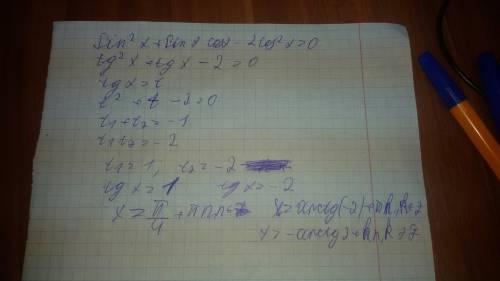 sin² x + sin x cosx - 2cos² x = 0
tg² x + tg x - 2 = 0
tgx = t
t² + t - 2 = 0
t₁ + t₂ = -1
t₁t₂ = -2
t₁ = 1, t₂ = -2
tg x = 1 tg x = -2
x = π/4 + πn n∈z x = arctg(-2) + πk, k∈z
x = -arctg2 + πn, k∈z